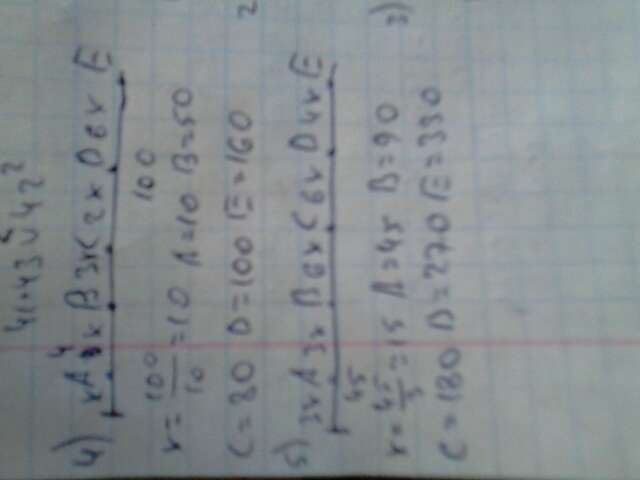 41·43 и 42²
4) x A 4x B 3x C 2x D 6x E
100
x = 100/10 = 10 A=10 B=50
C=80 D=100 E=160
2
5) 3x A 3x B 6x C 6x D 4x E
45
x = 45/3 = 15 A=45 B=90
3)
C=180 D=270 E=330